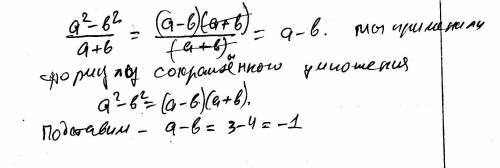 a²-b²/a+b = (a-b)(a+b)/(a+b) = a-b. мы применили
формулу сокращённого умножения
a²-b²=(a-b)(a+b).
Подставим - a-b = 3-4 = -1